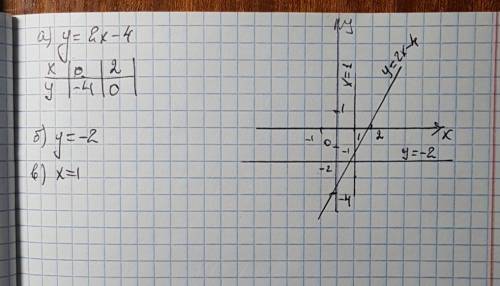 а) y=2x-4
x 0 2
y -4 0
б) y=-2
в) x=1
y
x=1
y=2x-4
1
-1 0 1 2 x
-1
-2 y=-2
-4